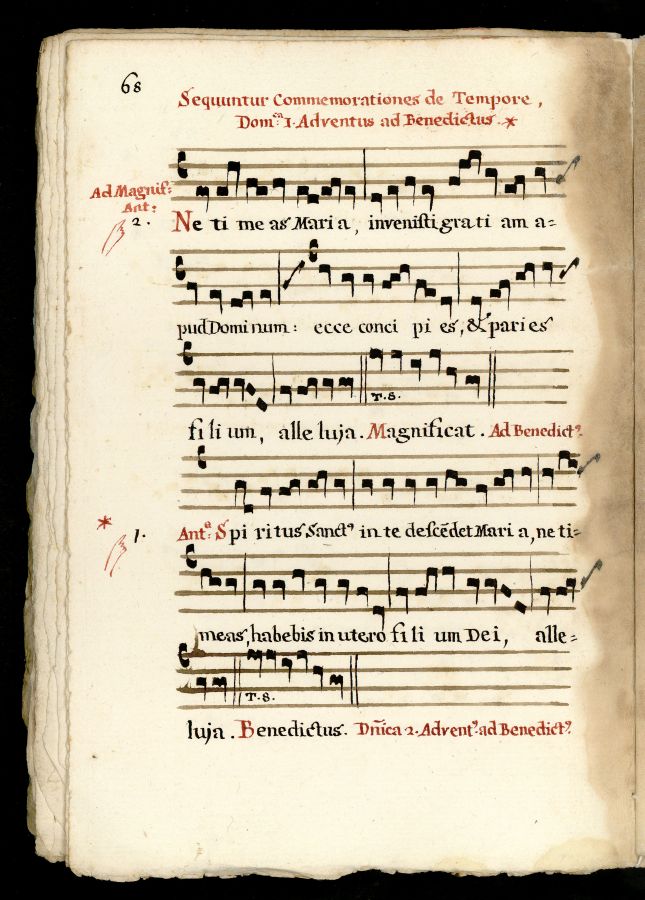 68
Sequuntur Commemorationes de Tempore,
Dom.ca 1. Adventus ad Benedictus. *
Ad Magnif:
Ant:
2.
Ne ti me as Mari a, invenisti grati am a=
pud Dominum: ecce conci pi es, & paries
T.S.
fi li um, alle luja. Magnificat. Ad Benedict9.
* 1.
Ant.a: Spi ritus Sanct9 in te descēdet Mari a, ne ti=
meas, habebis in utero fi li um Dei, alle=
T.S.
luja. Benedictus. Dñica 2. Advent9 ad Benedict9.